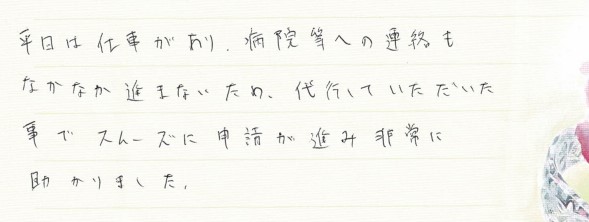 平日は仕事があり、病院等への連絡も
なかなか進まないため、代行していただいた
事でスムーズに申請が進み非常に
助かりました。